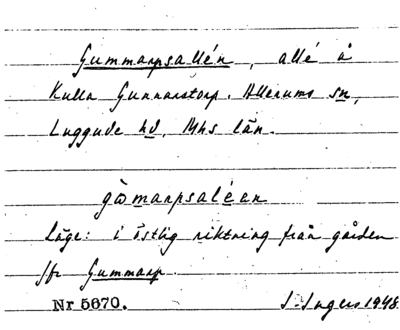 Gummarpsallén, allé å
Kulla Gunnarstorp. Allerums sn,
Luggude hd, Mhs län.
gòmarpsaléan
Läge: i östlig riktning från gården
Jfr Gummarp.
Nr 5670. S. Ingers 1948